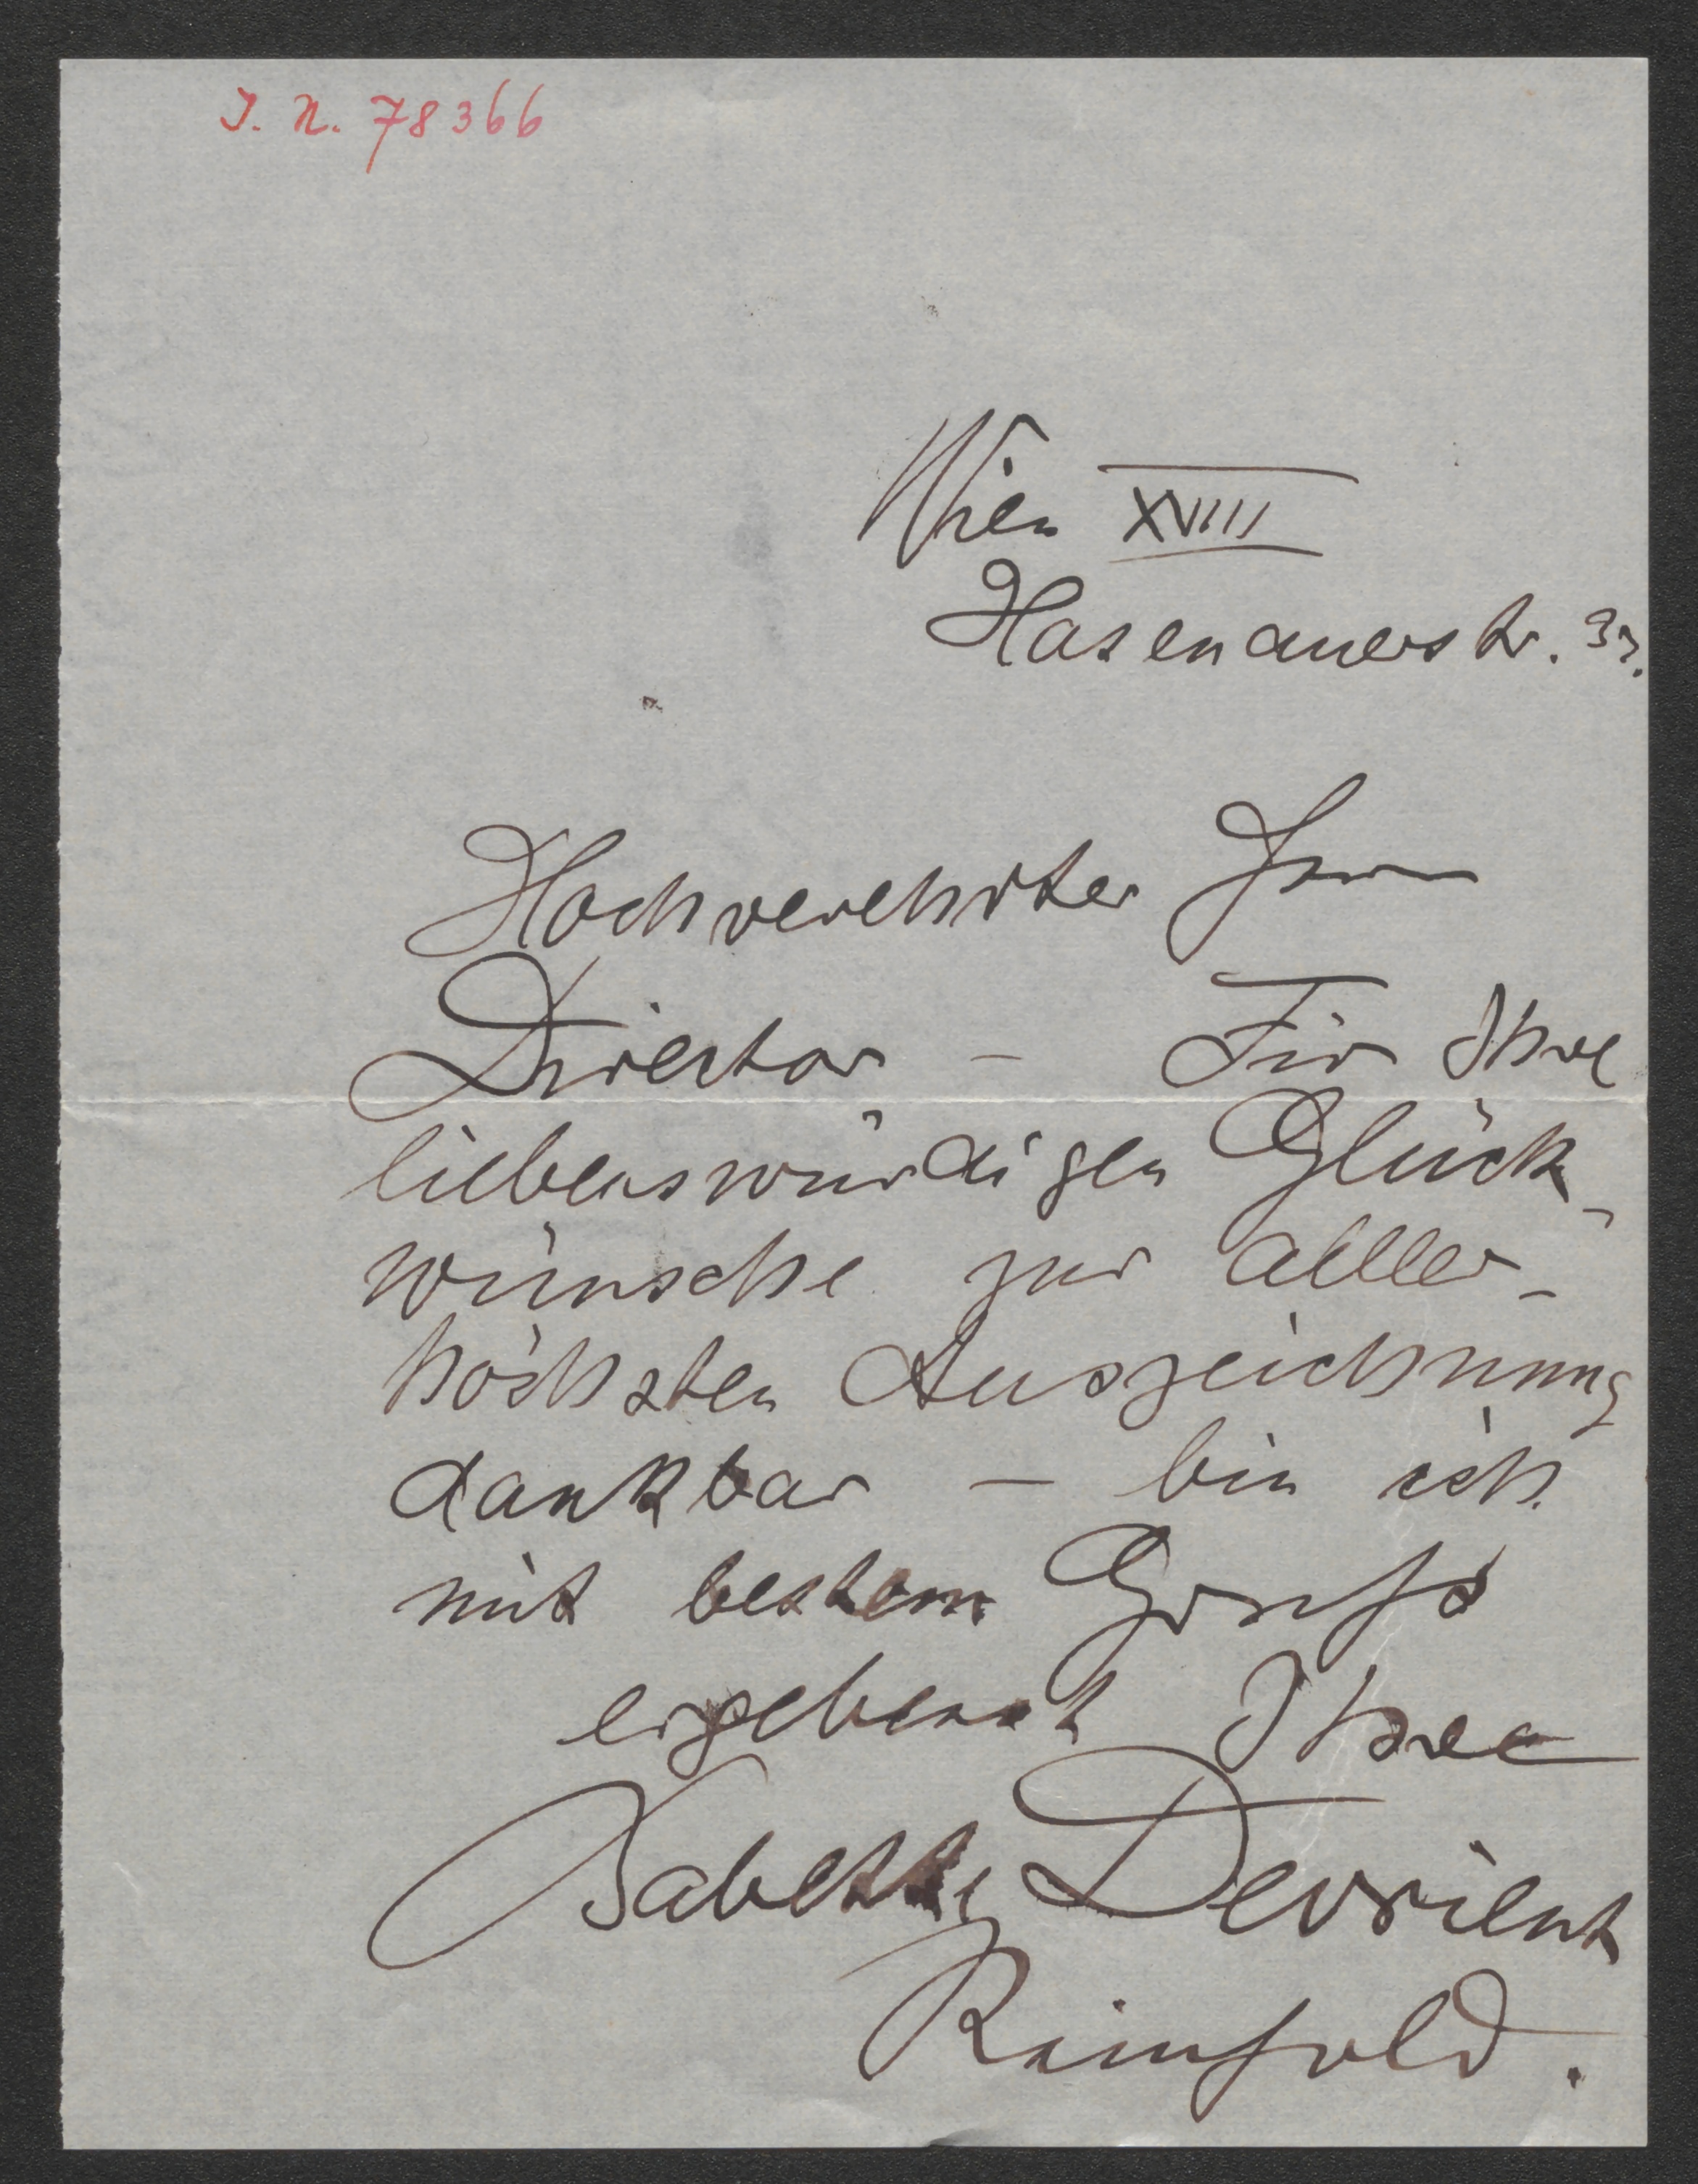 J. N. 78366
Wien XVIII
Hasenauerstr.
Hochverehrter Herr
Director – Für Ihre
liebenswürdigen Glück-
wünsche zur aller-
höchsten Auszeichnung
dankbar – bin ich
mit bestem Gruß
ergebenst Ihre
Babette Devrient
Reinhold.